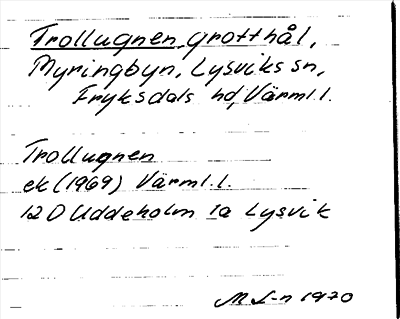 Trollugnen, grotthål,
Myringbyn, Lysviks sn,
Fryksdals hd, Värml. l.
Trollugnen
ek (1969) Värml. l.
12 D Uddeholm 1a Lysvik
M L-n 1970